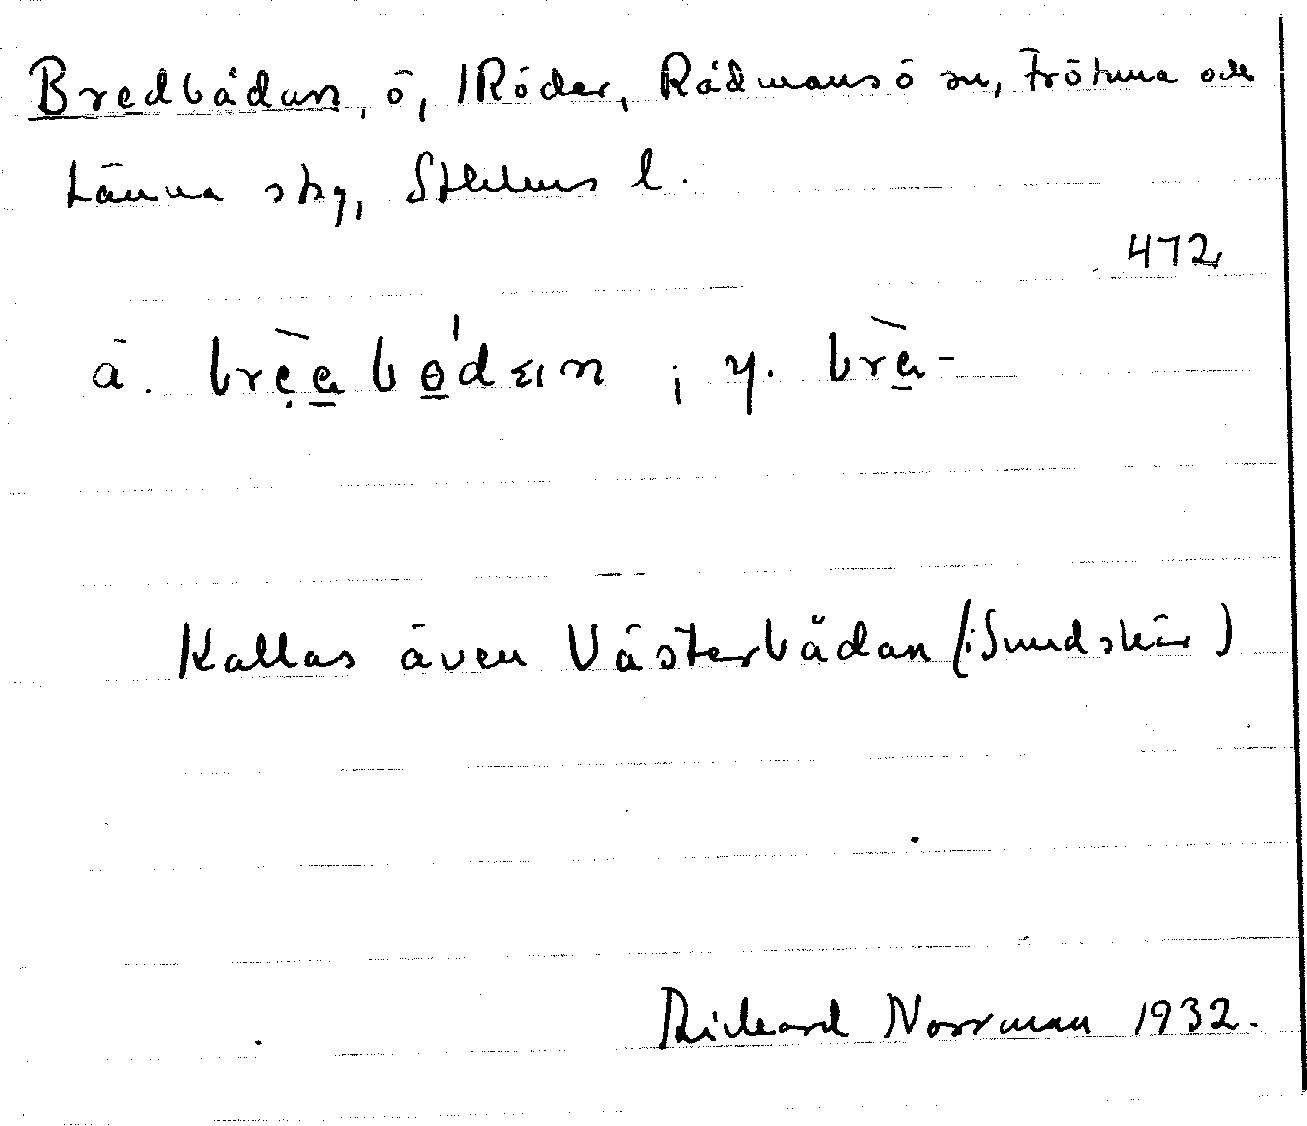 Bredbådan, ö, I Röder, Rådmansö sn, Frötuna och
Länna skg, Sthlms l.
472
ä. brèa bo̲'dɛn ; y. brà-
Kallas även Västerbådan (i Sundskär)
Rickard Norrman 1932.